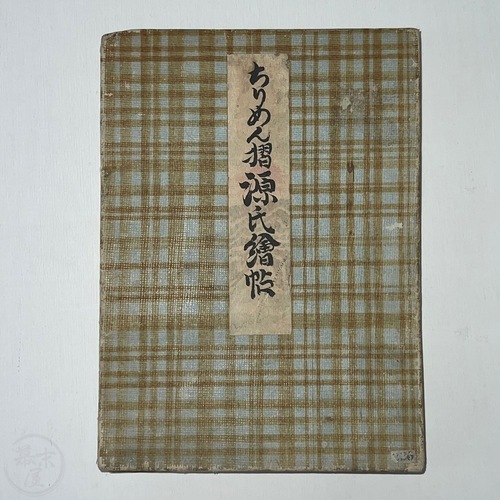 ちりめん摺源氏繪帖
226